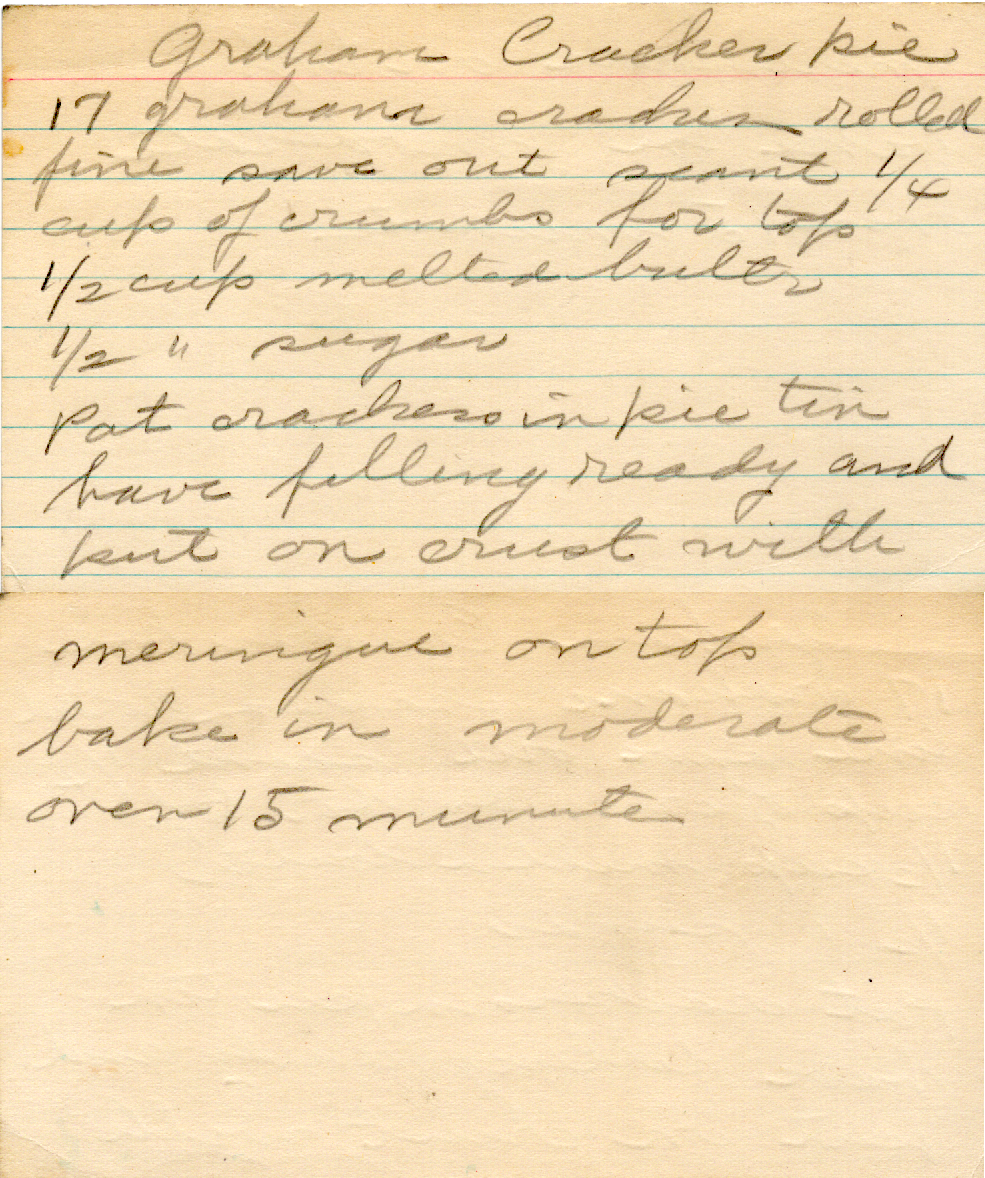 Graham Cracker pie
17 graham cracker rolled
fine save out scant 1/4
cup of crumbs for top
1/2 cup melted butter
1/2 " sugar
Pat crackers in pie tin
have filling ready and
put on crust with
meringue on top
bake in moderate
oven 15 minute